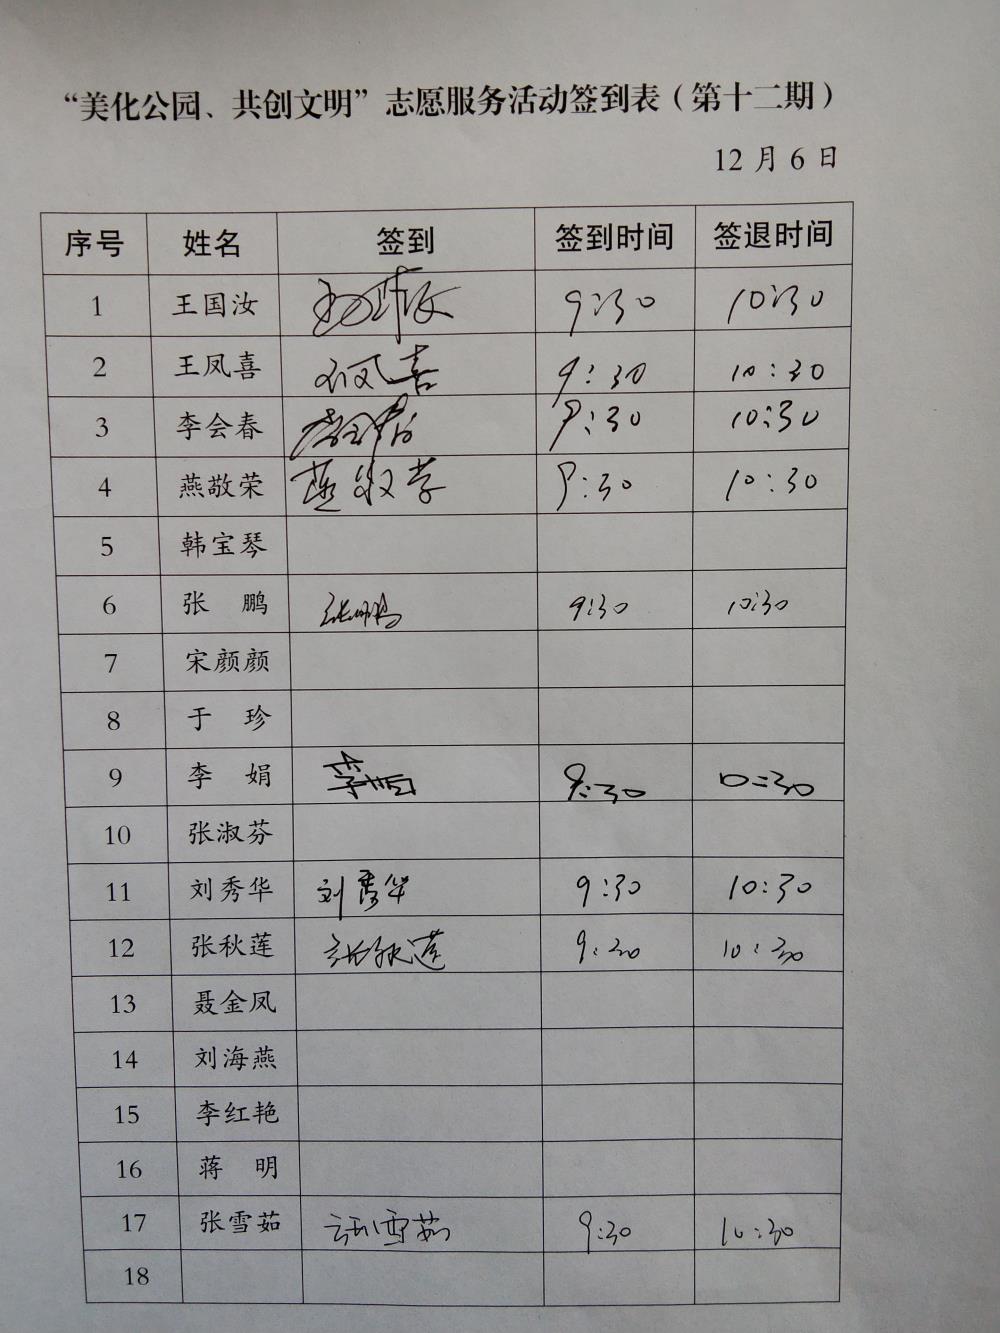 “美化公园、共创文明”志愿服务活动签到表（第十二期）
12月6日
序号 姓名 签到 签到时间 签退时间
1 王国汝 王国汝 9:30 10:30
2 王凤喜 王凤喜 9:30 10:30
3 李会春 李会春 9:30 10:30
4 燕敬荣 燕敬荣 9:30 10:30
5 韩宝琴
6 张 鹏 张鹏 9:30 10:30
7 宋颜颜
8 于 珍
9 李 娟 李娟 9:30 10:30
10 张淑芬
11 刘秀华 刘秀华 9:30 10:30
12 张秋莲 张秋莲 9:30 10:30
13 聂金凤
14 刘海燕
15 李红艳
16 蒋 明
17 张雪茹 张雪茹 9:30 10:30
18